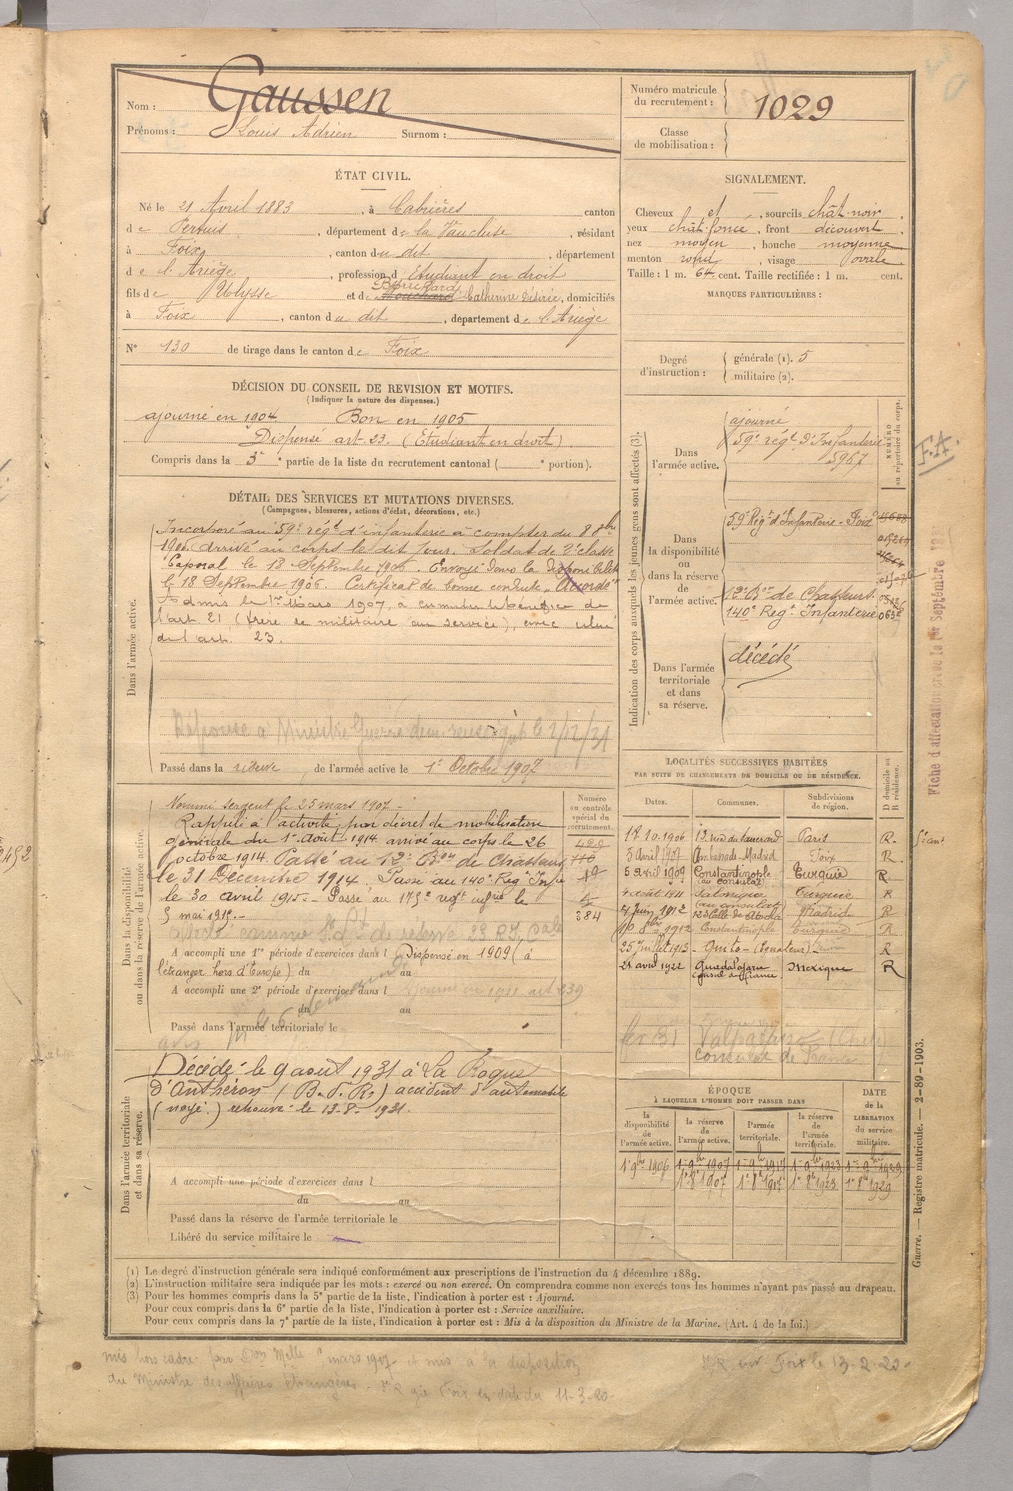 Nom : Gaussen
Prénoms : Louis Adrien Surnom :
Numéro matricule du recrutement : 1029
Classe de mobilisation :
ÉTAT CIVIL.
Né le 21 Avril 1883, à Cabrières canton
de Pertuis, département de la Vaucluse, résidant
à Foix, canton du dit, département
de l'Ariège, profession d'Etudiant en droit
fils de Ulysse et de Catherine Désirée, domiciliés
à Foix, canton du dit, département de l'Ariège
N° 130 de tirage dans le canton de Foix
SIGNALEMENT.
Cheveux et, sourcils chât-noir.
yeux chât. foncé, front découvert
nez moyen, bouche moyenne
menton rond, visage ovale
Taille : 1 m. 64 cent. Taille rectifiée : 1 m. cent.
MARQUES PARTICULIÈRES :
Degré d'instruction : générale (1). 5
militaire (2).
DÉCISION DU CONSEIL DE REVISION ET MOTIFS.
(Indiquer la nature des dispenses.)
ajourné en 1904 Bon en 1905
Dispensé art. 23. (Etudiant en droit)
Compris dans la 3e partie de la liste du recrutement cantonal ( e portion).
DÉTAIL DES SERVICES ET MUTATIONS DIVERSES.
(Campagnes, blessures, actions d'éclat, décorations, etc.)
Dans l'armée active.
Incorporé au 59e régt d'infanterie à compter du 8 8bre
1905, arrivé au corps le dit jour. Soldat de 2e classe
Caporal le 18 Septembre 1906. Envoyé dans la disponibilité
le 18 Septembre 1906. Certificat de bonne conduite Accordé
Admis le 1er Mars 1907, à cumuler le bénéfice de
l'art 21 (frère de militaire au service), avec celui
de l'art. 23.
Réponse à Ministre Guerre le 2/12/31
Passé dans la réserve de l'armée active le 1er Octobre 1907
Indication des corps auxquels les jeunes gens sont affectés (3).
NUMÉRO au répertoire du corps.
Dans l'armée active.
ajourné
59e régt d'Infanterie
5967
Dans la disponibilité ou dans la réserve de l'armée active.
59e Régt d'Infanterie - Foix
12e Bon de Chasseurs
140e Regt Infanterie
Dans l'armée territoriale et dans sa réserve.
décédé
F.A.
Dans la disponibilité ou dans la réserve de l'armée active.
Numéro au contrôle spécial du recrutement.
Nommé sergent le 25 mars 1907 -
Rappelé à l'activité par décret de mobilisation
générale du 1er Août 1914 arrivé au corps le 26
octobre 1914. Passé au 12e Bon de Chasseurs
le 31 Décembre 1914. Passé au 140e Regt Infie
le 30 avril 1915 - Passé au 175e regt infie le
5 mai 1915. -
384
A accompli une 1re période d'exercices dans l Dispensé en 1909 (à
l'étranger hors d'Europe) du au
A accompli une 2e période d'exercices dans l
du au
Passé dans l'armée territoriale le
LOCALITÉS SUCCESSIVES HABITÉES
PAR SUITE DE CHANGEMENTS DE DOMICILE OU DE RÉSIDENCE.
Dates. Communes. Subdivisions de région. D domicile ou R résidence.
18.10.1906 Paris R.
3 Avril 1907 Ambassade Madrid Foix R
5 Avril 1909 Constantinople (au consulat) Turquie R
4 août 1911 Salonique (au consulat) Turquie R
7 Juin 1912 Madrid R
1912 Constantinople Turquie R
25 Juillet 1915 - Quito - (Equateur) R
21 avril 1921 Guadalajara Consul de France Mexique R
Valparaiso (Chili)
consulat de France
Dans l'armée territoriale et dans sa réserve.
Décédé le 9 août 1931 à La Roque
d'Anthéron (B. d. R.) accident d'automobile
(noyé.) retrouvé le 13-8-1931.
A accompli une période d'exercices dans l
du au
Passé dans la réserve de l'armée territoriale le
Libéré du service militaire le
ÉPOQUE
À LAQUELLE L'HOMME DOIT PASSER DANS
la disponibilité de l'armée active. la réserve de l'armée active. l'armée territoriale. la réserve de l'armée territoriale. DATE de la LIBÉRATION du service militaire.
1er 9bre 1906 1-9bre 1907 1-9bre 1917 1-9bre 1923 1er-9bre 1929
1er 8bre 1907 1er 8bre 1917 1er 8bre 1923 1er 8bre 1929
(1) Le degré d'instruction générale sera indiqué conformément aux prescriptions de l'instruction du 4 décembre 1889.
(2) L'instruction militaire sera indiquée par les mots : exercé ou non exercé. On comprendra comme non exercés tous les hommes n'ayant pas passé au drapeau.
(3) Pour les hommes compris dans la 5e partie de la liste, l'indication à porter est : Ajourné.
Pour ceux compris dans la 6e partie de la liste, l'indication à porter est : Service auxiliaire.
Pour ceux compris dans la 7e partie de la liste, l'indication à porter est : Mis à la disposition du Ministre de la Marine. (Art. 4 de la loi.)
Guerre. — Registre matricule. — 2-89-1903.
mis hors cadre mars 1907 et mis à la disposition
du Ministre des affaires étrangères - Foix en date du 11-3-20
Foix le 13-2-20